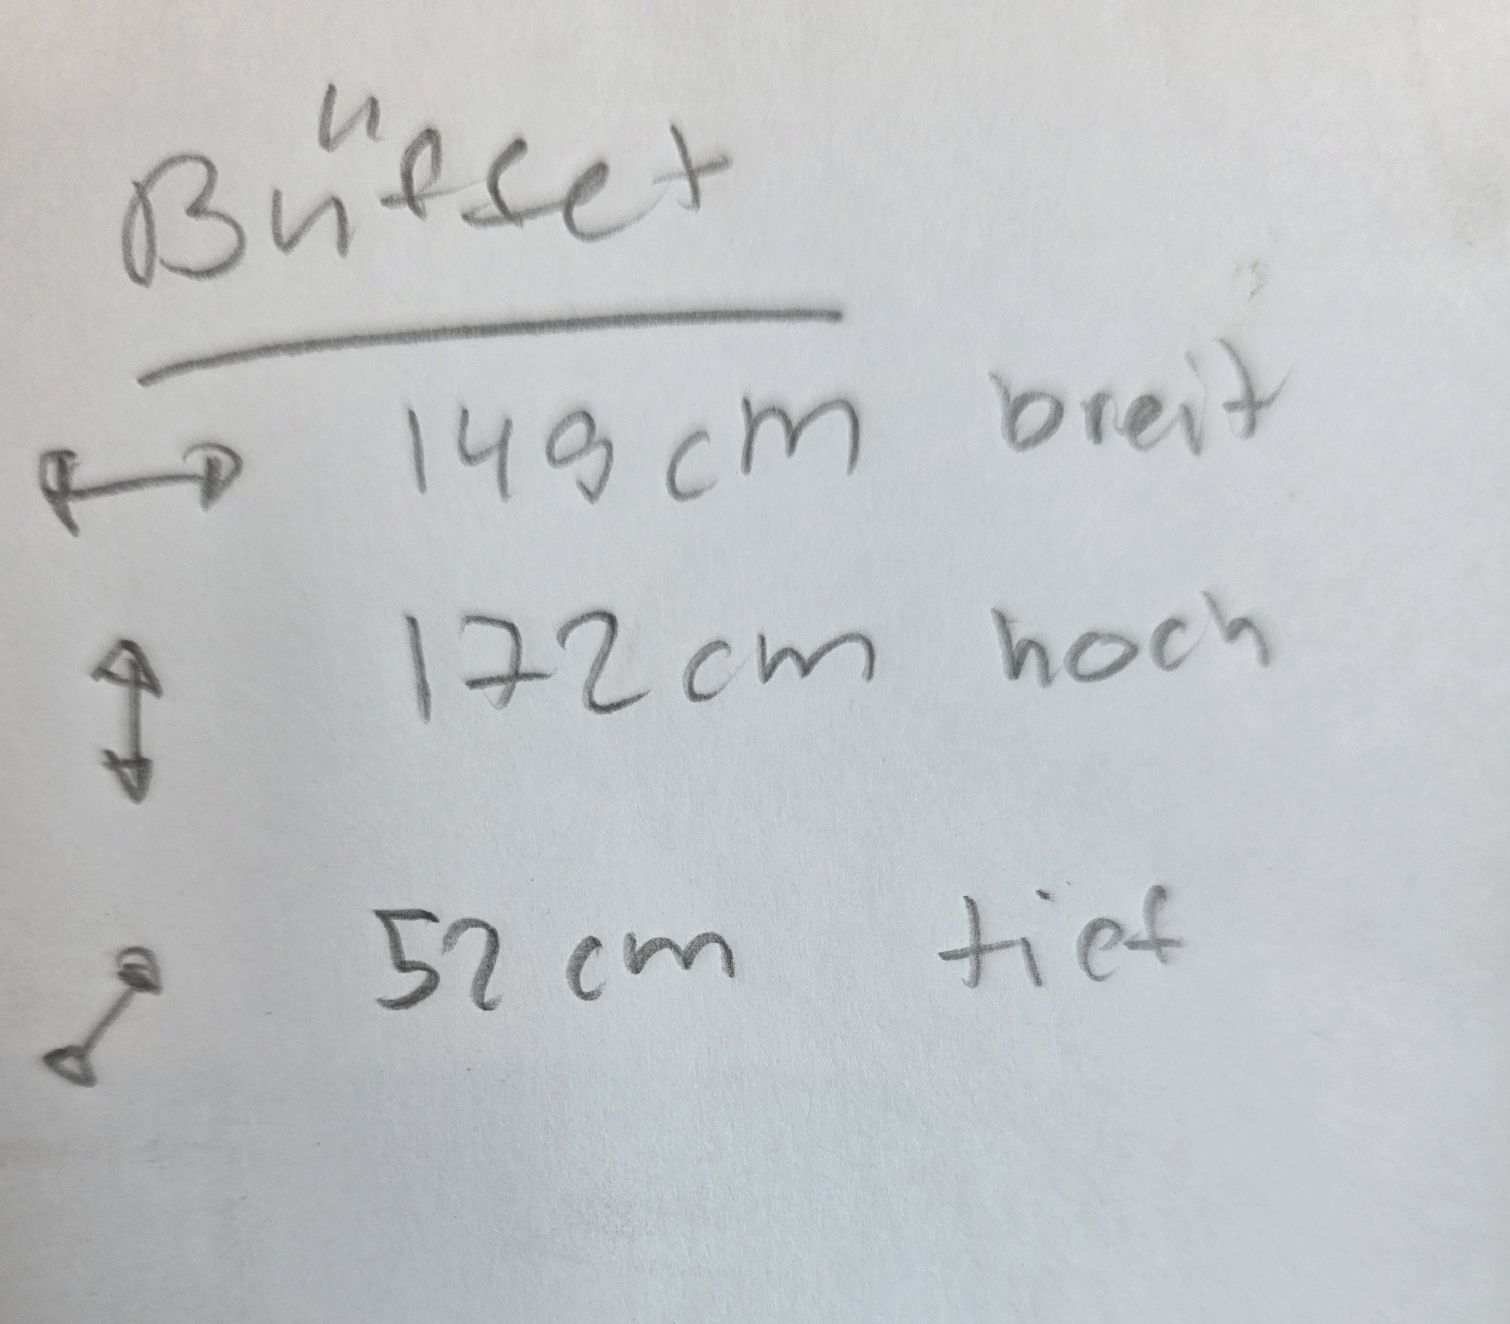 Büffet
149 cm breit
172 cm hoch
52 cm tief